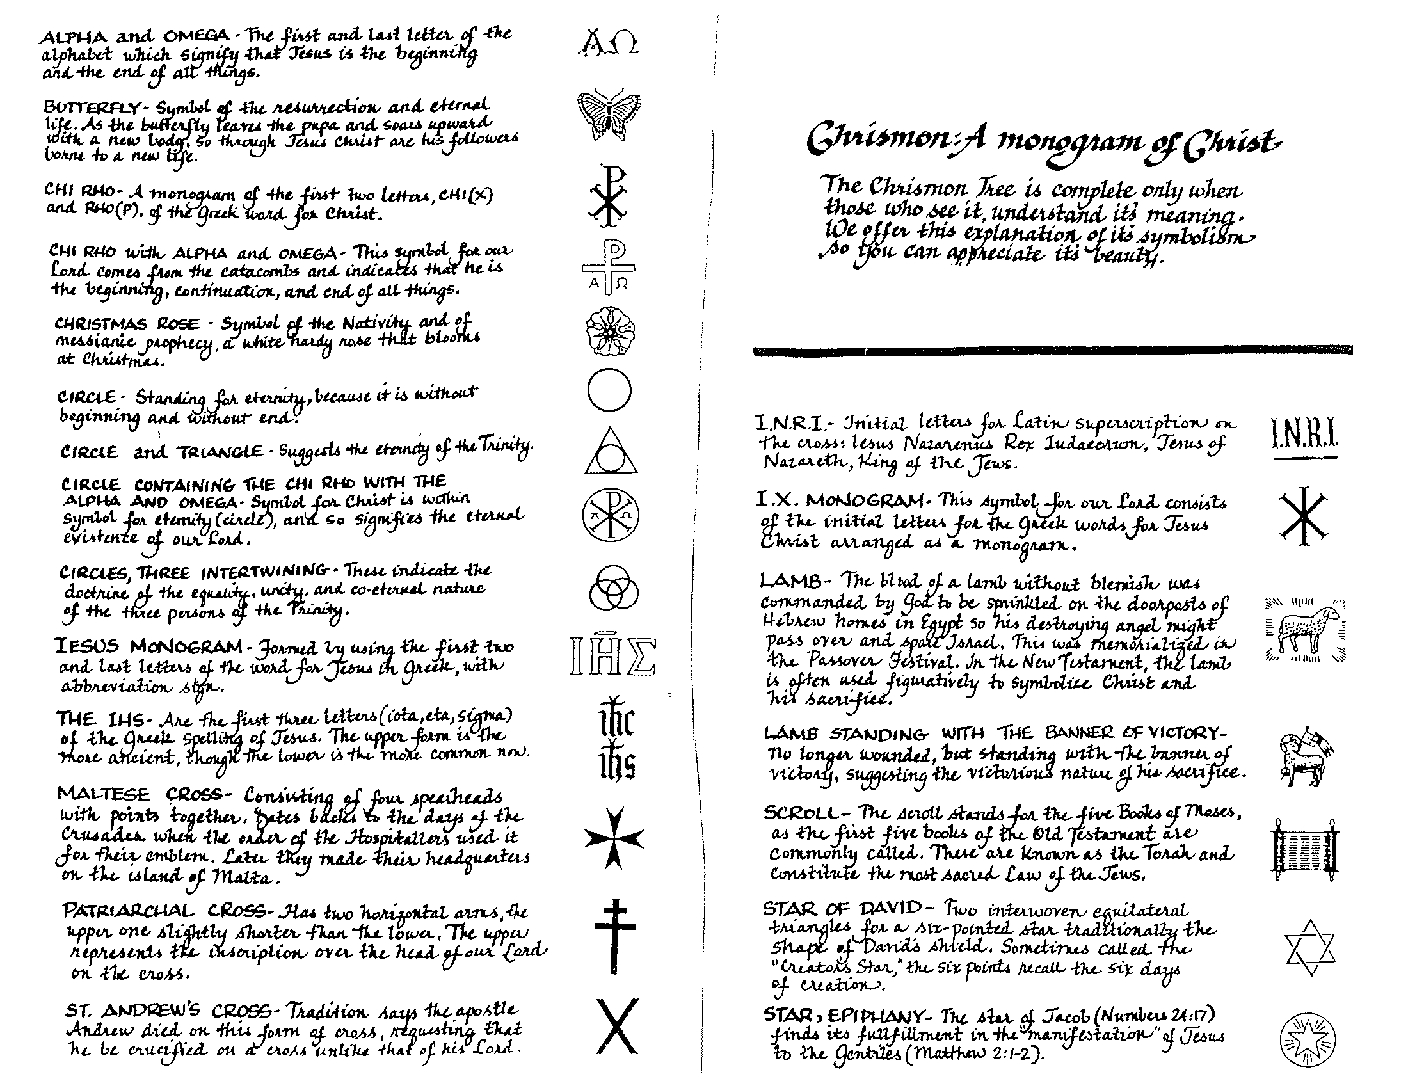 ALPHA and OMEGA - The first and last letter of the
alphabet which signify that Jesus is the beginning
and the end of all things.
ΑΩ
BUTTERFLY - Symbol of the resurrection and eternal
life. As the butterfly leaves the pupa and soars upward
with a new body, so through Jesus Christ are his followers
borne to a new life.
CHI RHO - A monogram of the first two letters, CHI(X)
and RHO(P), of the Greek word for Christ.
CHI RHO with ALPHA and OMEGA - This symbol for our
Lord comes from the catacombs and indicates that he is
the beginning, continuation, and end of all things.
Α Ω
CHRISTMAS ROSE - Symbol of the Nativity and of
messianic prophecy, a white hardy rose that blooms
at Christmas.
CIRCLE - Standing for eternity, because it is without
beginning and without end.
CIRCLE and TRIANGLE - Suggests the eternity of the Trinity.
CIRCLE CONTAINING THE CHI RHO WITH THE
ALPHA AND OMEGA - Symbol for Christ is within
symbol for eternity (circle), and so signifies the eternal
existence of our Lord.
CIRCLES, THREE INTERTWINING - These indicate the
doctrine of the equality, unity, and co-eternal nature
of the three persons of the Trinity.
IESUS MONOGRAM - Formed by using the first two
and last letters of the word for Jesus in Greek, with
abbreviation sign.
ΙΗΣ
THE IHS - Are the first three letters (iota, eta, sigma)
of the Greek spelling of Jesus. The upper form is the
more ancient, though the lower is the more common now.
ihc
ihs
MALTESE CROSS - Consisting of four spearheads
with points together. Dates backs to the days of the
Crusades when the order of the Hospitallers used it
for their emblem. Later they made their headquarters
on the island of Malta.
PATRIARCHAL CROSS - Has two horizontal arms, the
upper one slightly shorter than the lower. The upper
represents the inscription over the head of our Lord
on the cross.
ST. ANDREW'S CROSS - Tradition says the apostle
Andrew died on this form of cross, requesting that
he be crucified on a cross unlike that of his Lord.
Chrismon: A monogram of Christ
The Chrismon Tree is complete only when
those who see it, understand its meaning.
We offer this explanation of its symbolism
so you can appreciate its beauty.
I.N.R.I. - Initial letters for Latin superscription on
the cross: Iesus Nazarenus Rex Iudaeorum, Jesus of
Nazareth, King of the Jews.
I.N.R.I.
I.X. MONOGRAM - This symbol for our Lord consists
of the initial letters for the Greek words for Jesus
Christ arranged as a monogram.
LAMB - The blood of a lamb without blemish was
commanded by God to be sprinkled on the doorposts of
Hebrew homes in Egypt so his destroying angel might
pass over and spare Israel. This was memorialized in
the Passover Festival. In the New Testament, the lamb
is often used figuratively to symbolize Christ and
his sacrifice.
LAMB STANDING WITH THE BANNER OF VICTORY -
No longer wounded, but standing with the banner of
victory, suggesting the victorious nature of his sacrifice.
SCROLL - The scroll stands for the five Books of Moses,
as the first five books of the Old Testament are
commonly called. These are known as the Torah and
constitute the most sacred Law of the Jews.
STAR OF DAVID - Two interwoven equilateral
triangles for a six-pointed star traditionally the
shape of David's shield. Sometimes called the
"Creator's Star," the six points recall the six days
of creation.
STAR, EPIPHANY - The star of Jacob (Numbers 24:17)
finds its fullfillment in the "manifestation" of Jesus
to the Gentiles (Matthew 2:1-2).